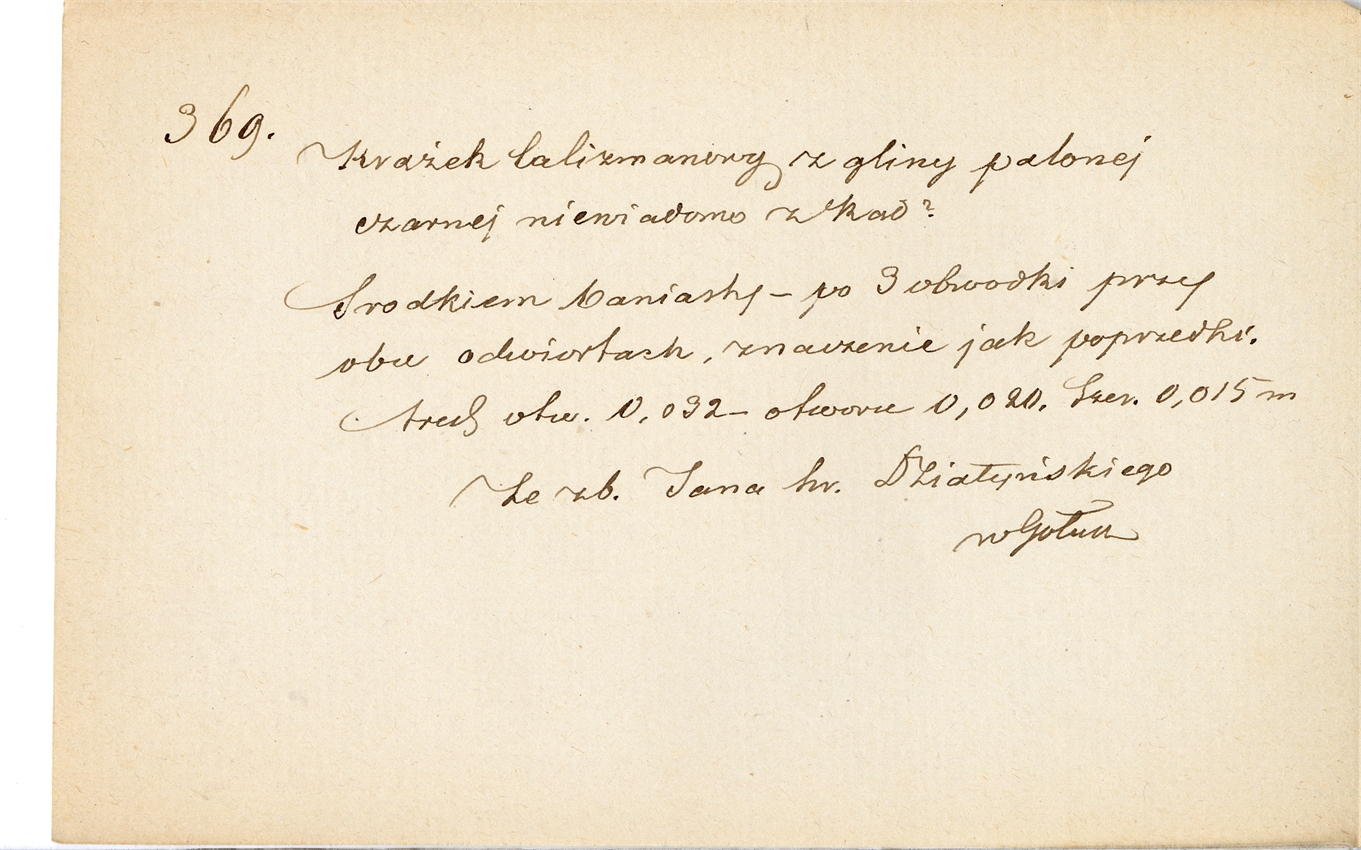 369. Krążek talizmanowy z gliny palonej
czarnej niewiadomo zkąd?
Środkiem baniasty – po 3 obwódki przy
obu odwiertach, znaczenie jak poprzedni.
otw. 0,032 – otworu 0,020. Szer. 0,015 m
Ze zb. Jana hr. Działyńskiego
w